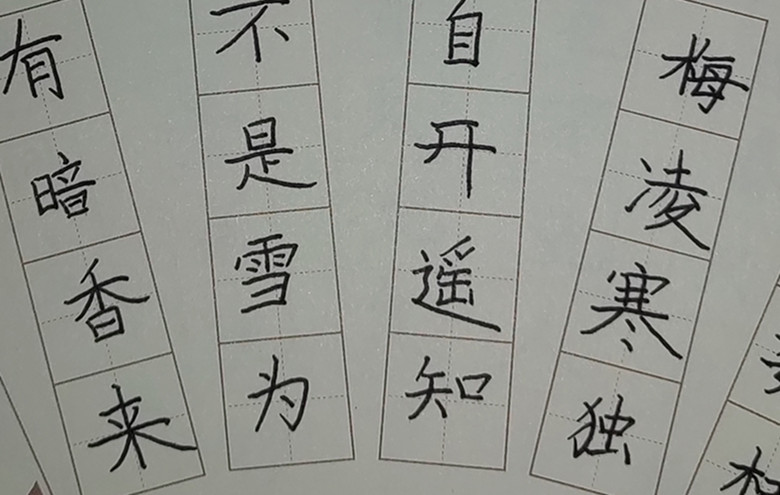 梅凌寒独
自开遥知
不是雪为
有暗香来